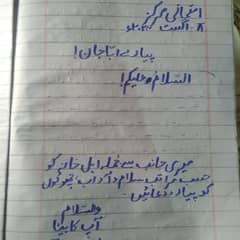 امتحانی مرکز
۸۔اگست
پیارے ابا جان!
السلام وعلیکم!
میری جانب سے تمام اہل خانہ کو
حسب مراتب سلام و آداب، چھوٹوں
کو پیار و دعائیں۔
والسلام
آپ کا بیٹا